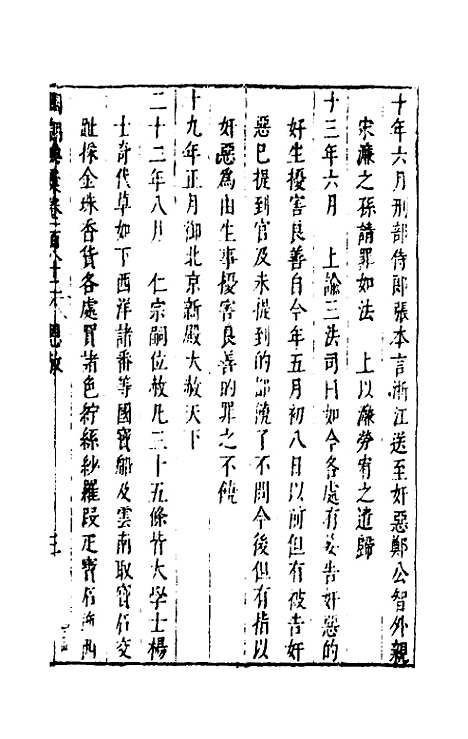 十年六月刑部侍郎張本言浙江送至奸惡鄭公智外親
宋濂之孫請罪如法　上以濂勞宥之遣歸
十三年六月　上諭三法司日如今各處有妄告奸惡的
好生擾害良善自今年五月初八日以前但有被告奸
惡已提到官及未提到的都饒了不問今後但有指以
奸惡為由生事擾害良善的罪之不饒
十九年正月御北京新殿大赦天下
二十二年八月　仁宗嗣位赦凡三十五條皆大學士楊
士奇代草如下西洋諸番等國寶船及雲南取寶石交
趾採金珠香貨各處買諸色紵絲紗羅段疋寶石浙西
國朝典彙卷之一百八十二　恩赦